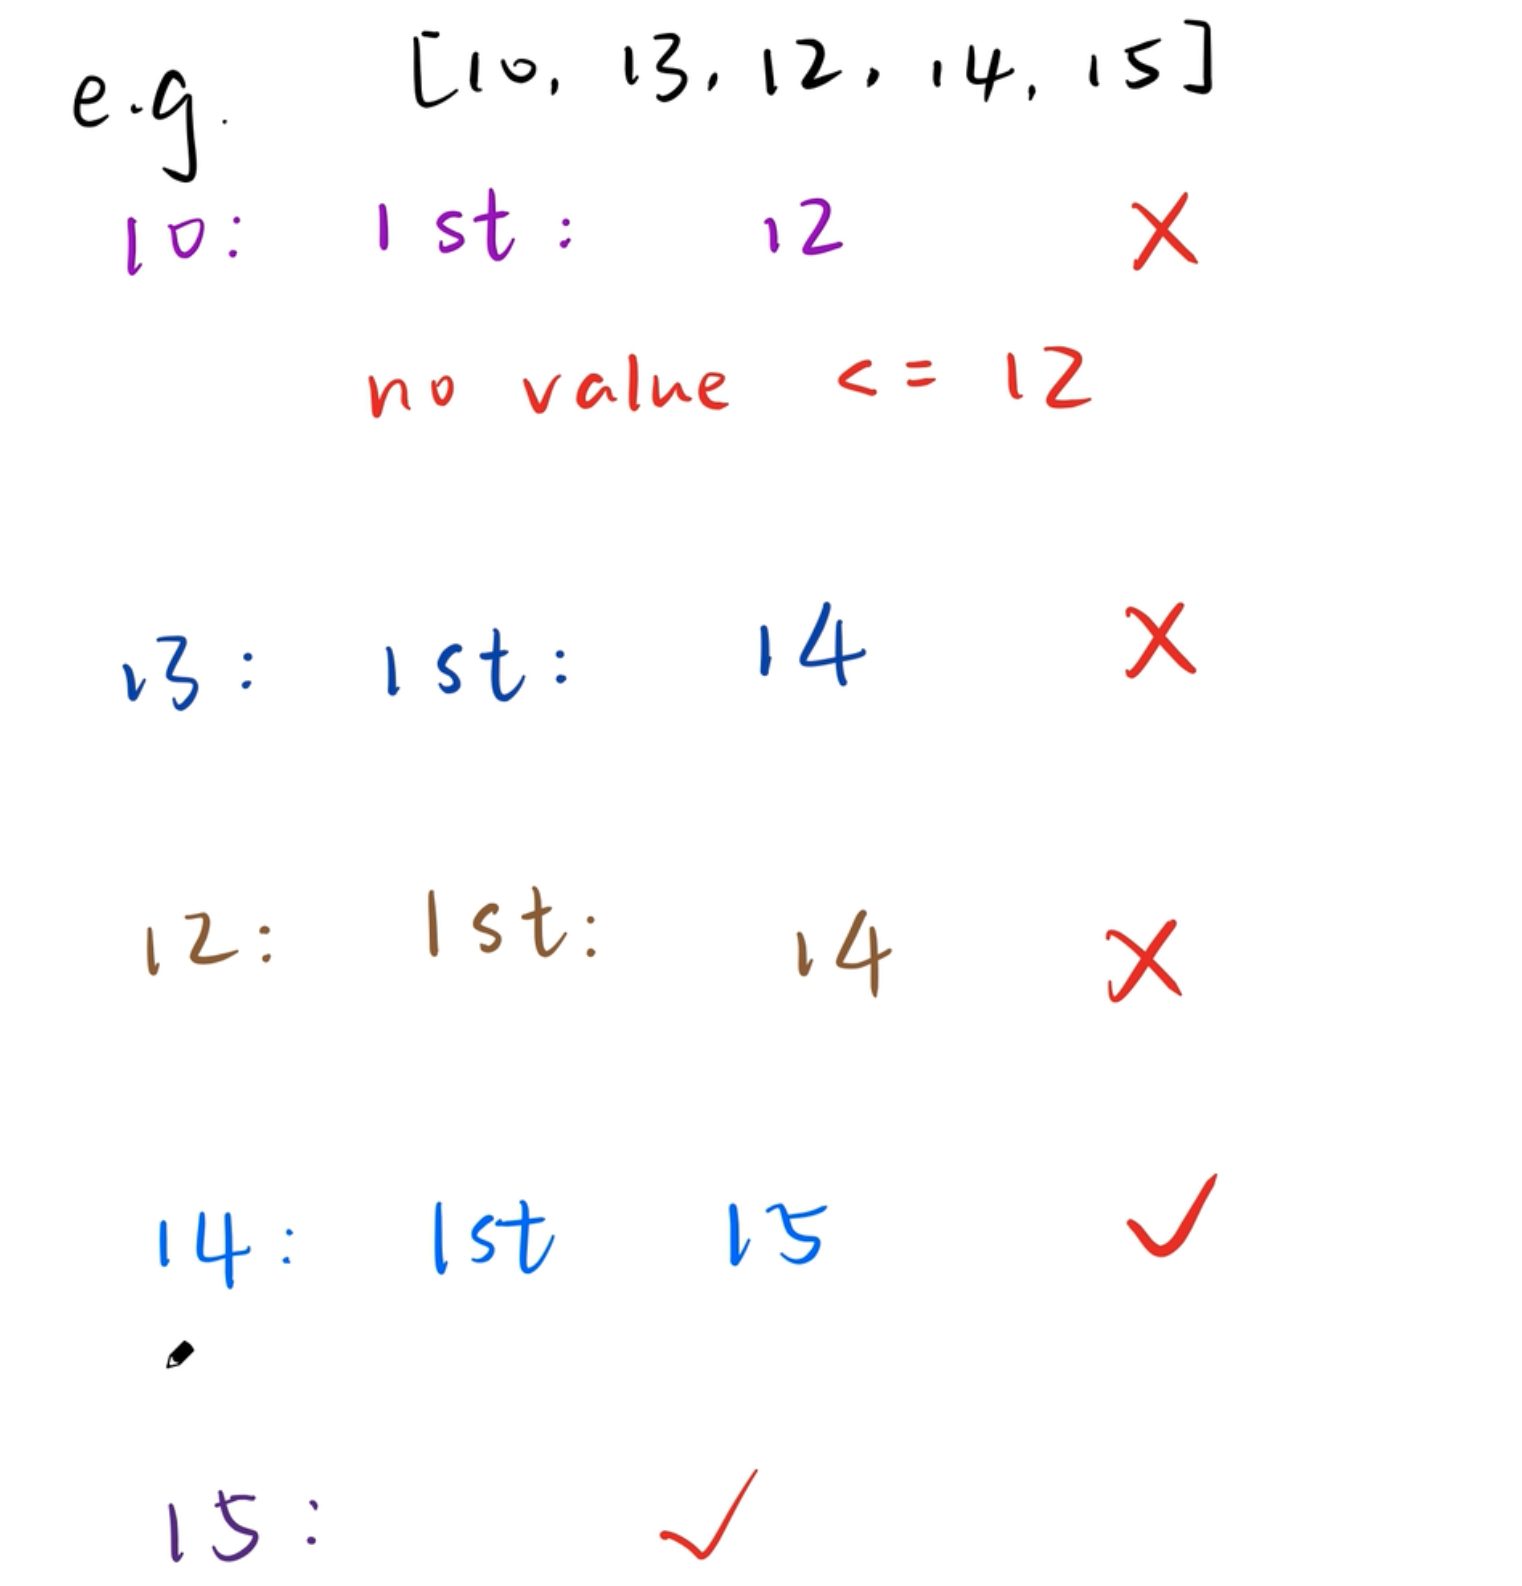 e.g. [10, 13, 12, 14, 15]
10: 1st: 12 ✗
no value <= 12
13: 1st: 14 ✗
12: 1st: 14 ✗
14: 1st 15 ✓
15: ✓